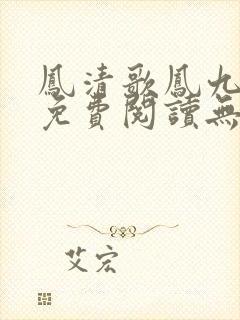 鳳清歌鳳九
免費閱讀無
艾宏